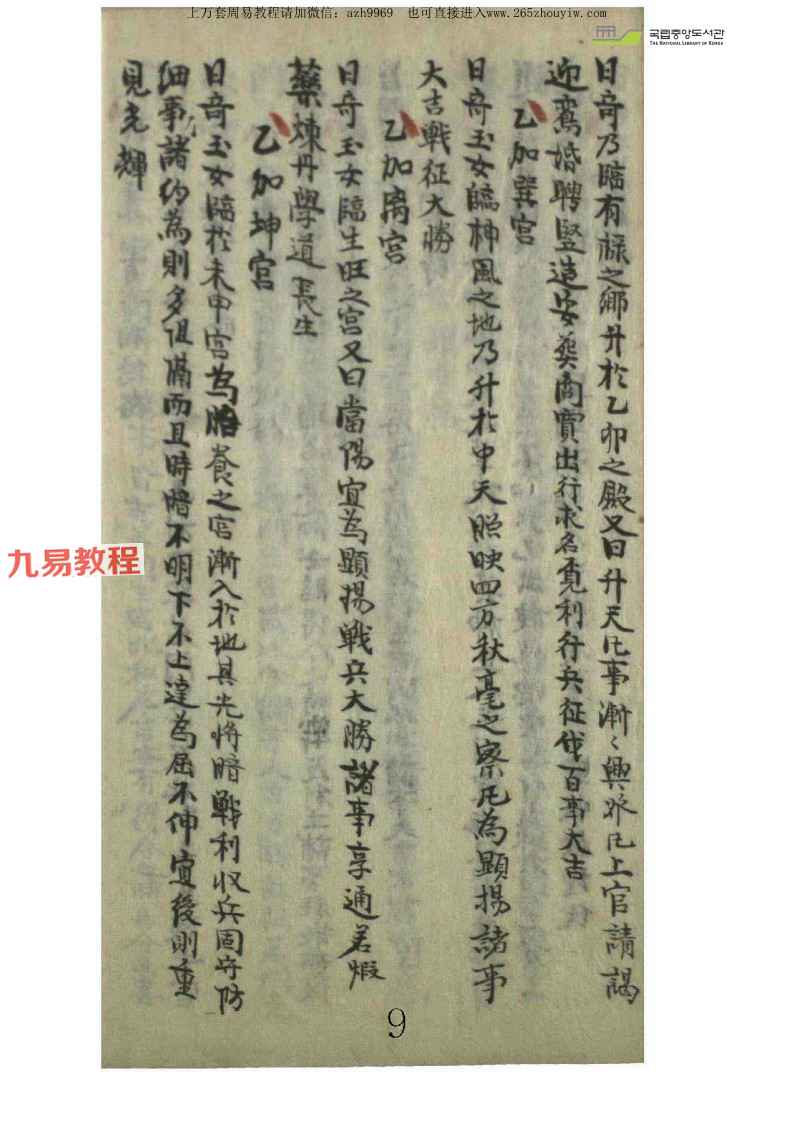 上万套周易教程请加微信：azh9969 也可直接进入www.265zhouyiw.com
국립중앙도서관
THE NATIONAL LIBRARY OF KOREA
日奇乃臨有祿之鄉升於乙卯之殿又曰升天凡事漸々興旺凡上官請謁
迎鸞婚聘竪造安葬商賈出行求名覓利行兵征伐百事大吉
乙加巽宮
日奇玉女臨神風之地乃升於中天照映四方秋毫之察凡為顯揚諸事
大吉戰征大勝
乙加离宮
日奇玉女臨生旺之宮又曰當陽宜為顯揚戰兵大勝諸事亨通若煆
藥煉丹學道長生
乙加坤宮
日奇玉女臨於未申宮為胎養之宮漸入於地其光將暗戰利收兵固守防
細事諸凡為則多阻隔而且時暗不明下不上達為屈不伸宜後則重
見光輝
九易教程
9